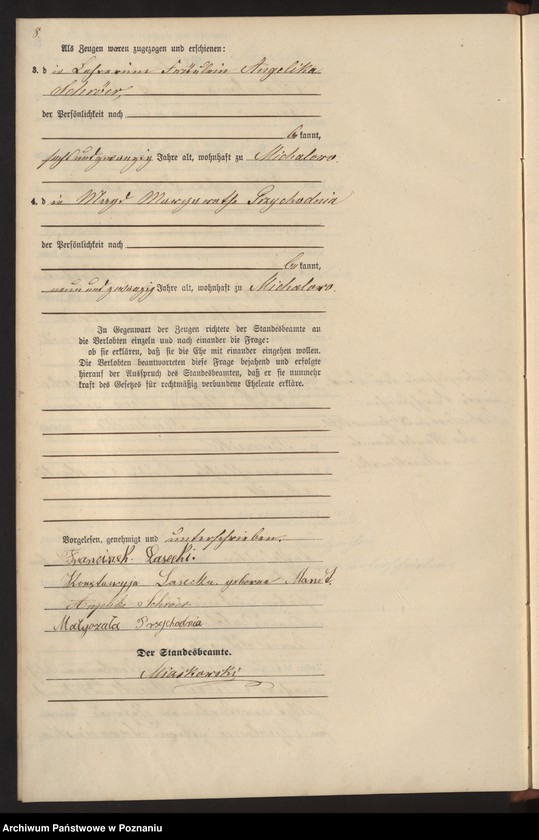 8.
Als Zeugen waren zugezogen und erschienen:
3. d ie Lehrerin Fräulein Angelika
Schröer,
der Persönlichkeit nach
be kannt,
sechs und zwanzig Jahre alt, wohnhaft zu Michalowo.
4. d ie Magd Margarethe Przychodnia
der Persönlichkeit nach
be kannt,
neun und zwanzig Jahre alt, wohnhaft zu Michalowo.
In Gegenwart der Zeugen richtete der Standesbeamte an
die Verlobten einzeln und nach einander die Frage:
ob sie erklären, daß sie die Ehe mit einander eingehen wollen.
Die Verlobten beantworteten diese Frage bejahend und erfolgte
hierauf der Ausspruch des Standesbeamten, daß er sie nunmehr
kraft des Gesetzes für rechtmäßig verbundene Eheleute erkläre.
Vorgelesen, genehmigt und unterschrieben.
Franciszek Lasecki.
Konstancyja Lasecka geborene
Angelika Schröer
Małgorzata Przychodnia
Der Standesbeamte.
Miaskowski
Archiwum Państwowe w Poznaniu